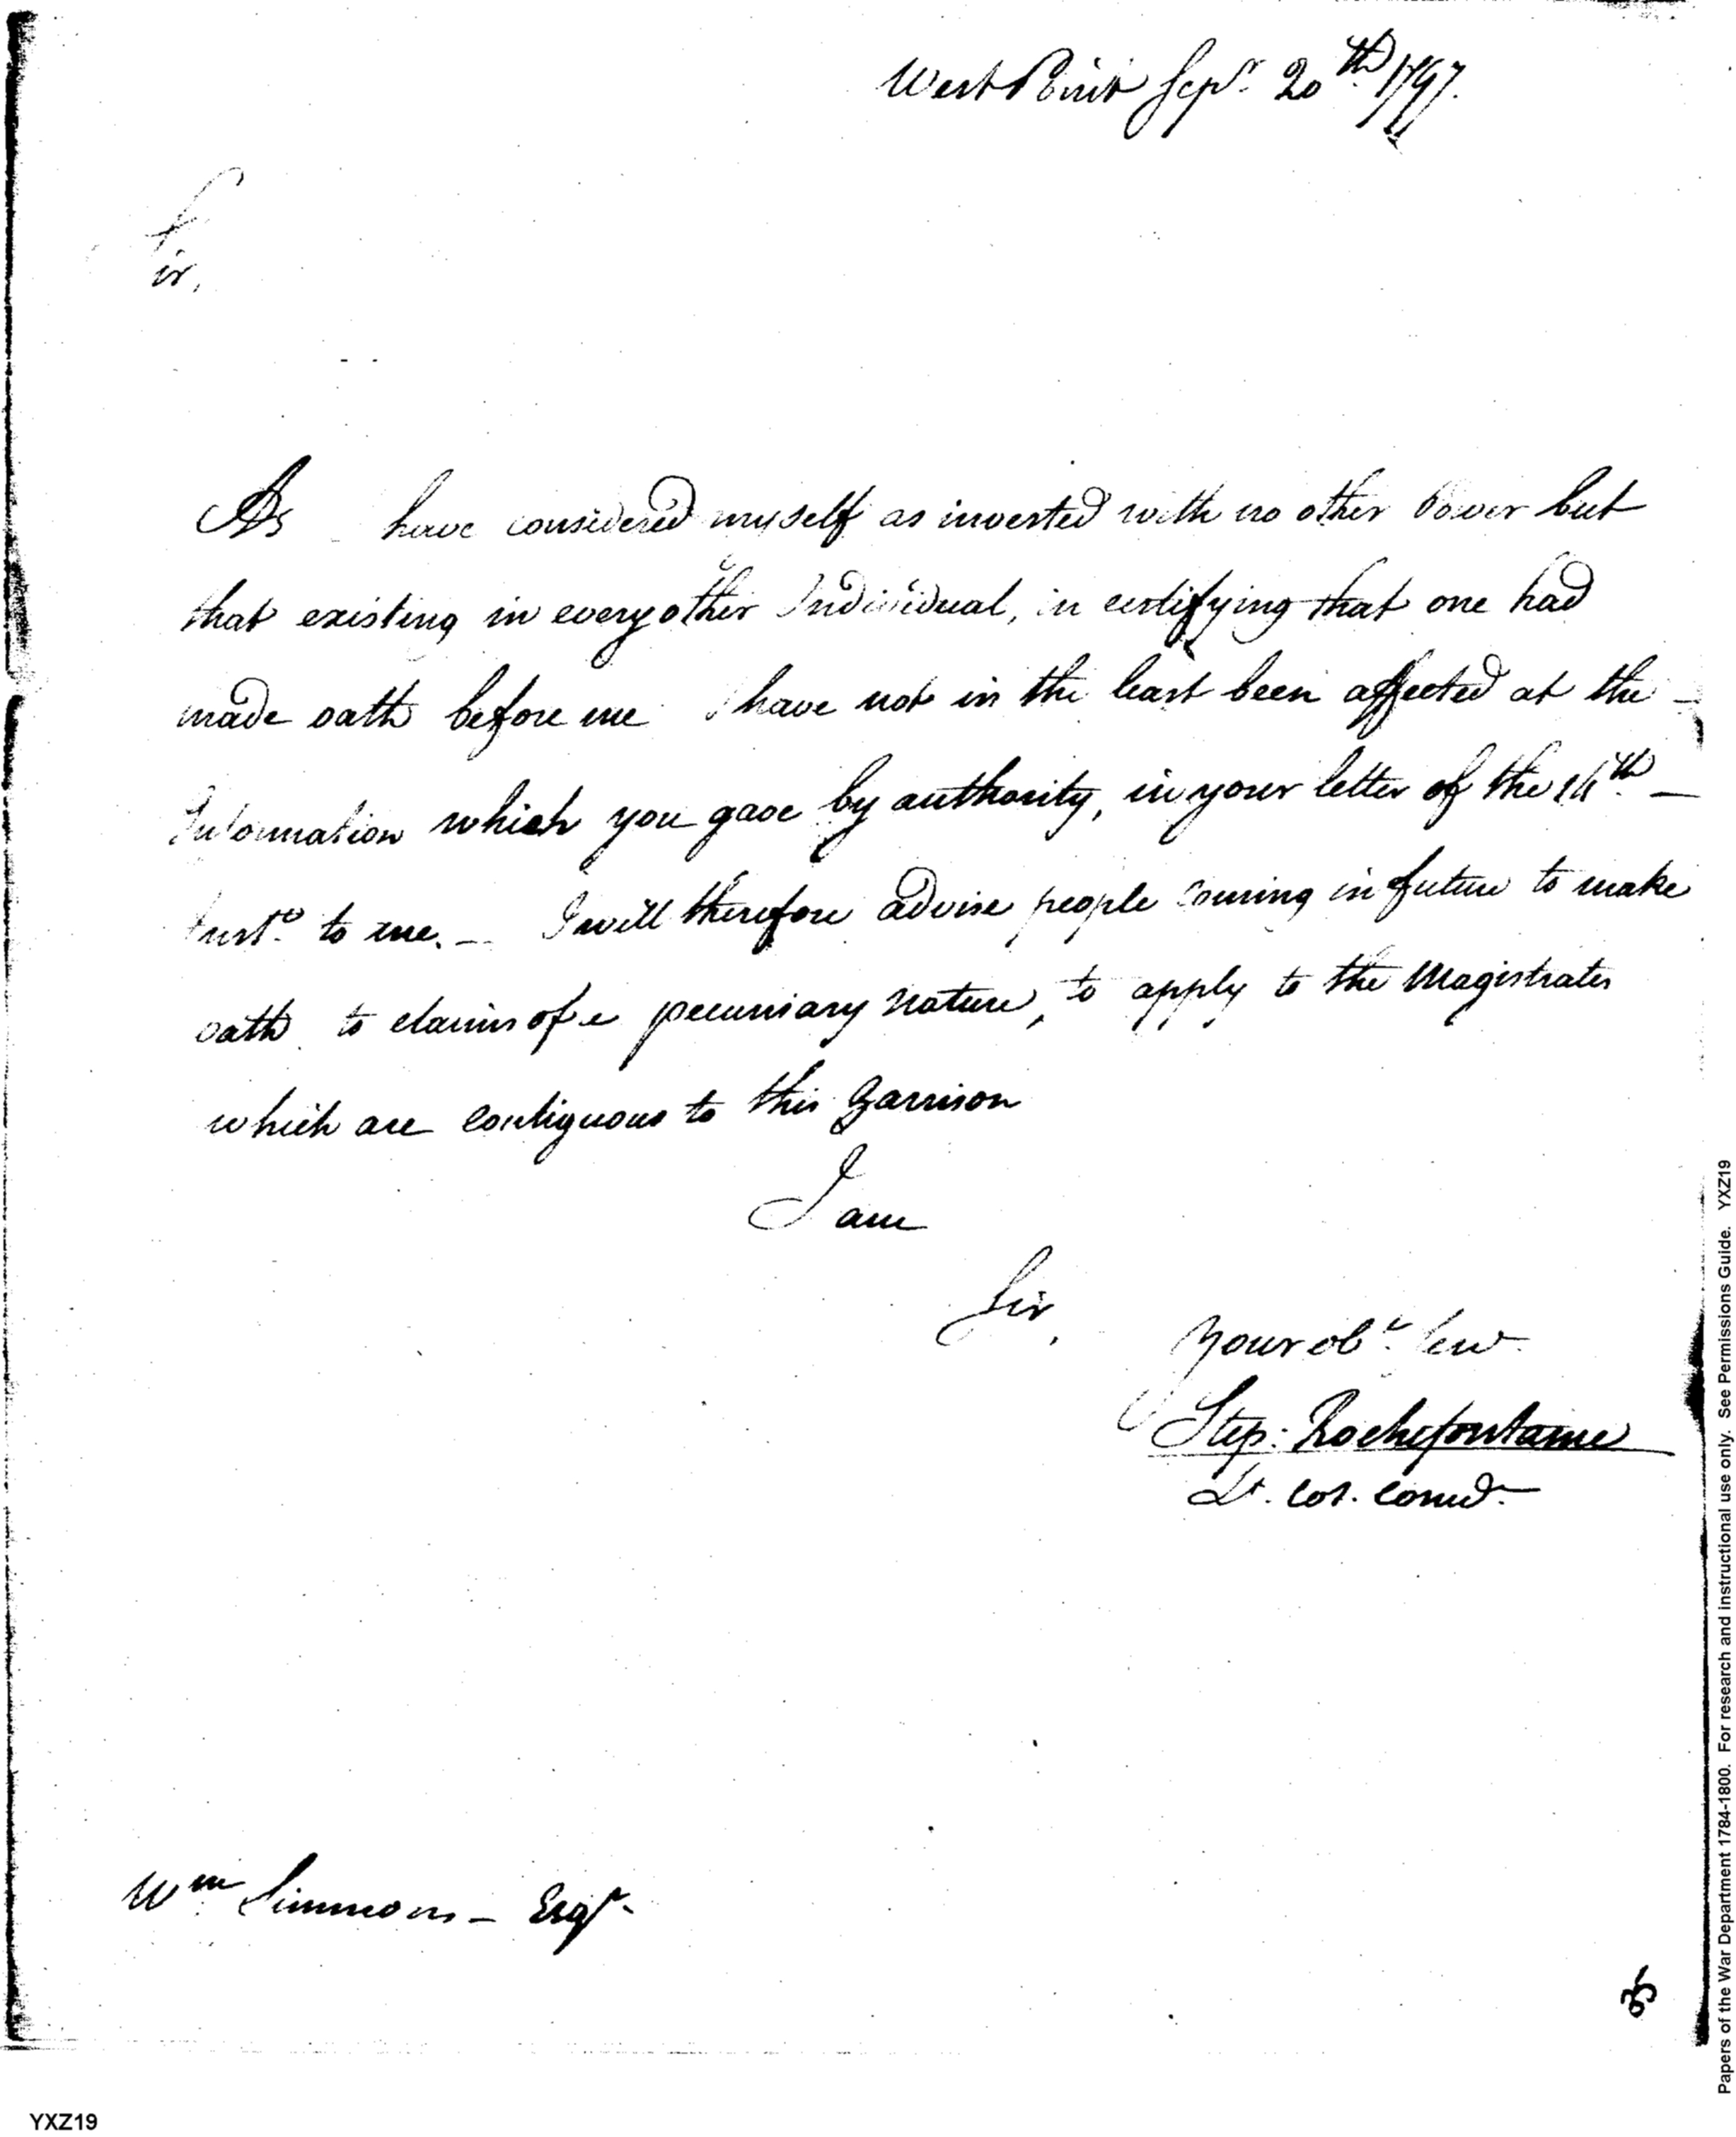 West Point Sepr. 20th. 1797.
Sir,
As have considered myself as invested with no other Power but
that existing in every other Individual, in certifying that one had
made oath before me I have not in the least been affected at the –
Information which you gave by authority, in your letter of the 14th. –
to me. – I will therefore advise people coming in future to make
oath to claims of a pecuniary nature, to apply to the Magistrates
which are contiguous to this Garrison
I am
Sir,
Your obt. serv.
Step: Rochefontaine
Lt. Col. Comd.
Wm. Simmons – Esqr.
35
YXZ19
Papers of the War Department 1784-1800. For research and instructional use only. See Permissions Guide. YXZ19